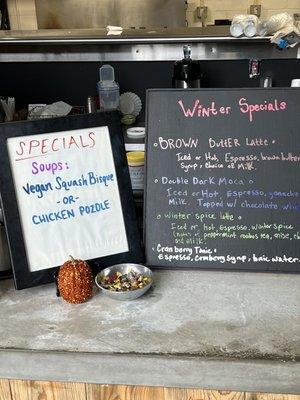 SPECIALS
SOUPS:
Vegan Squash Bisque
-OR-
CHICKEN POZOLE
Winter Specials
BROWN Butter Latte
Iced or Hot, Espresso, brown butter
Syrup, choice of Milk.
Double Dark Moca
Iced or Hot, Espresso,
Milk, Topped w/ chocolate whip
winter spice latte
Iced or hot, Espresso, Winter spice
of peppermint rooibos tea, anise,
and milk.
Cranberry Tonic
Espresso, Cranberry Syrup, tonic water